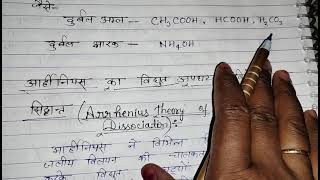 जैसे-
दुर्बल अम्ल — CH3COOH, HCOOH, H2CO3
दुर्बल क्षारक — NH4OH
आर्हीनियस का विद्युत अपघटन
सिद्धान्त (Arrhenius Theory of
Dissociation):-
आर्हीनियस ने विभिन्न
जलीय विलयन की चालकता
करके विद्युत